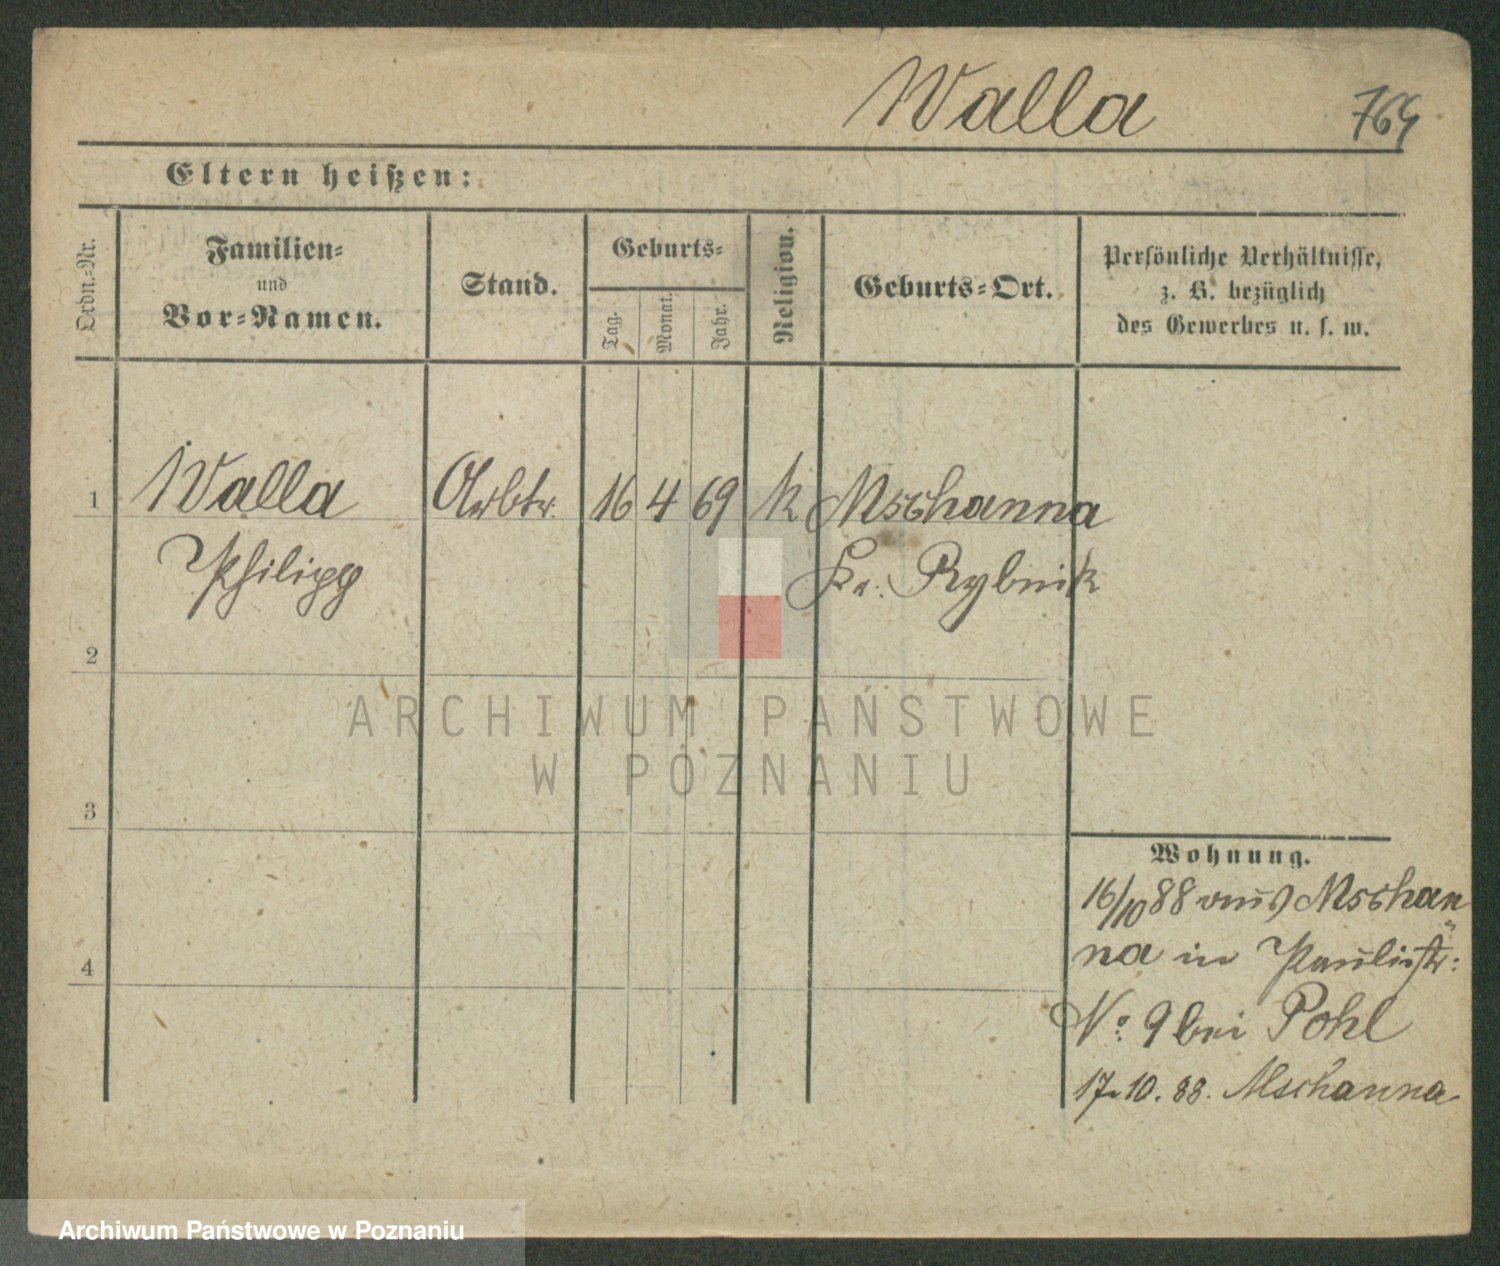 Walla 764
Eltern heißen:
Ordn.-Nr.
Familien-
und
Vor-Namen.
Stand.
Geburts-
Tag.
Monat.
Jahr.
Religion.
Geburts-Ort.
Persönliche Verhältnisse,
z. B. bezüglich
des Gewerbes u. s. w.
1 Walla Arbtr. 16 4 69 k Mschanna
Philipp Kr. Rybnik
2
3
4
Wohnung.
16/10 88 aus Mschan
na in Paulistr:
No: 9 bei Pohl
17.10.88. Mschanna
ARCHIWUM PAŃSTWOWE
W POZNANIU
Archiwum Państwowe w Poznaniu